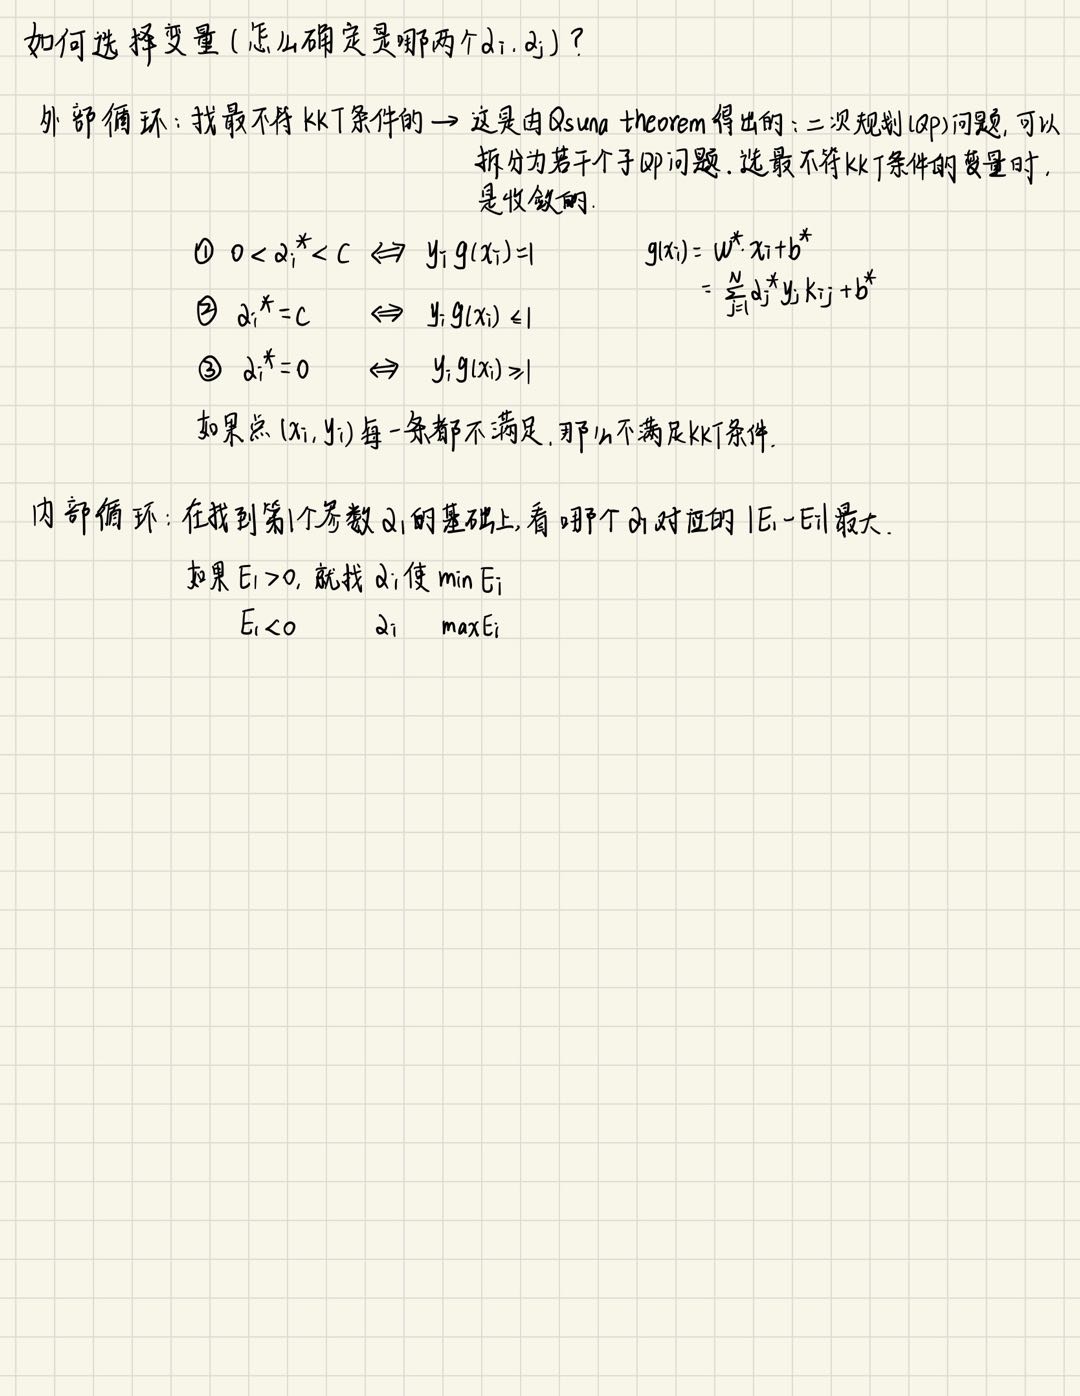 如何选择变量(怎么确定是哪两个αi.αj)?
外部循环:找最不符KKT条件的→这是由Qsuna theorem得出的:二次规划(QP)问题,可以
拆分为若干个子QP问题.选最不符KKT条件的变量时,
是收敛的.
① 0<αi*<C ⇔ yi g(xi)=1 g(xi)=w*·xi+b*
=∑_{j=1}^{N} αj* yj Kij+b*
② αi*=C ⇔ yi g(xi)≤1
③ αi*=0 ⇔ yi g(xi)≥1
如果点(xi,yi)每一条都不满足.那么不满足KKT条件.
内部循环:在找到第1个参数α1的基础上,看哪个αi对应的|E1-Ei|最大.
如果E1>0,就找αi使min Ei
E1<0 αi maxEi